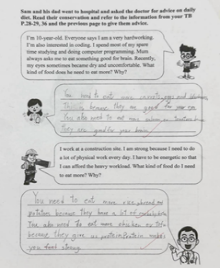 Sam and his dad went to hospital and asked the doctor for advice on daily
diet. Read their conversation and refer to the information from your TB
P.28-29, 36 and the previous page to give them advice.
I'm 10-year-old. Everyone says I am a very hardworking.
I'm also interested in coding. I spend most of my spare
time studying and doing computer programming. Mum
always asks me to eat something good for brain. Recently,
my eyes sometimes became dry and uncomfortable. What
kind of food does he need to eat more? Why?
You need to eat more
because they are good for your eyes
You also need to eat more
They are good for your brain
I work at a construction site. I am strong because I need to do
a lot of physical work every day. I have to be energetic so that
I can afford the heavy workload. What kind of food do I need
to eat more? Why?
You need to eat more
potatoes because they have a lot of
You also need to eat more chicken
because They give us protein
you feel strong